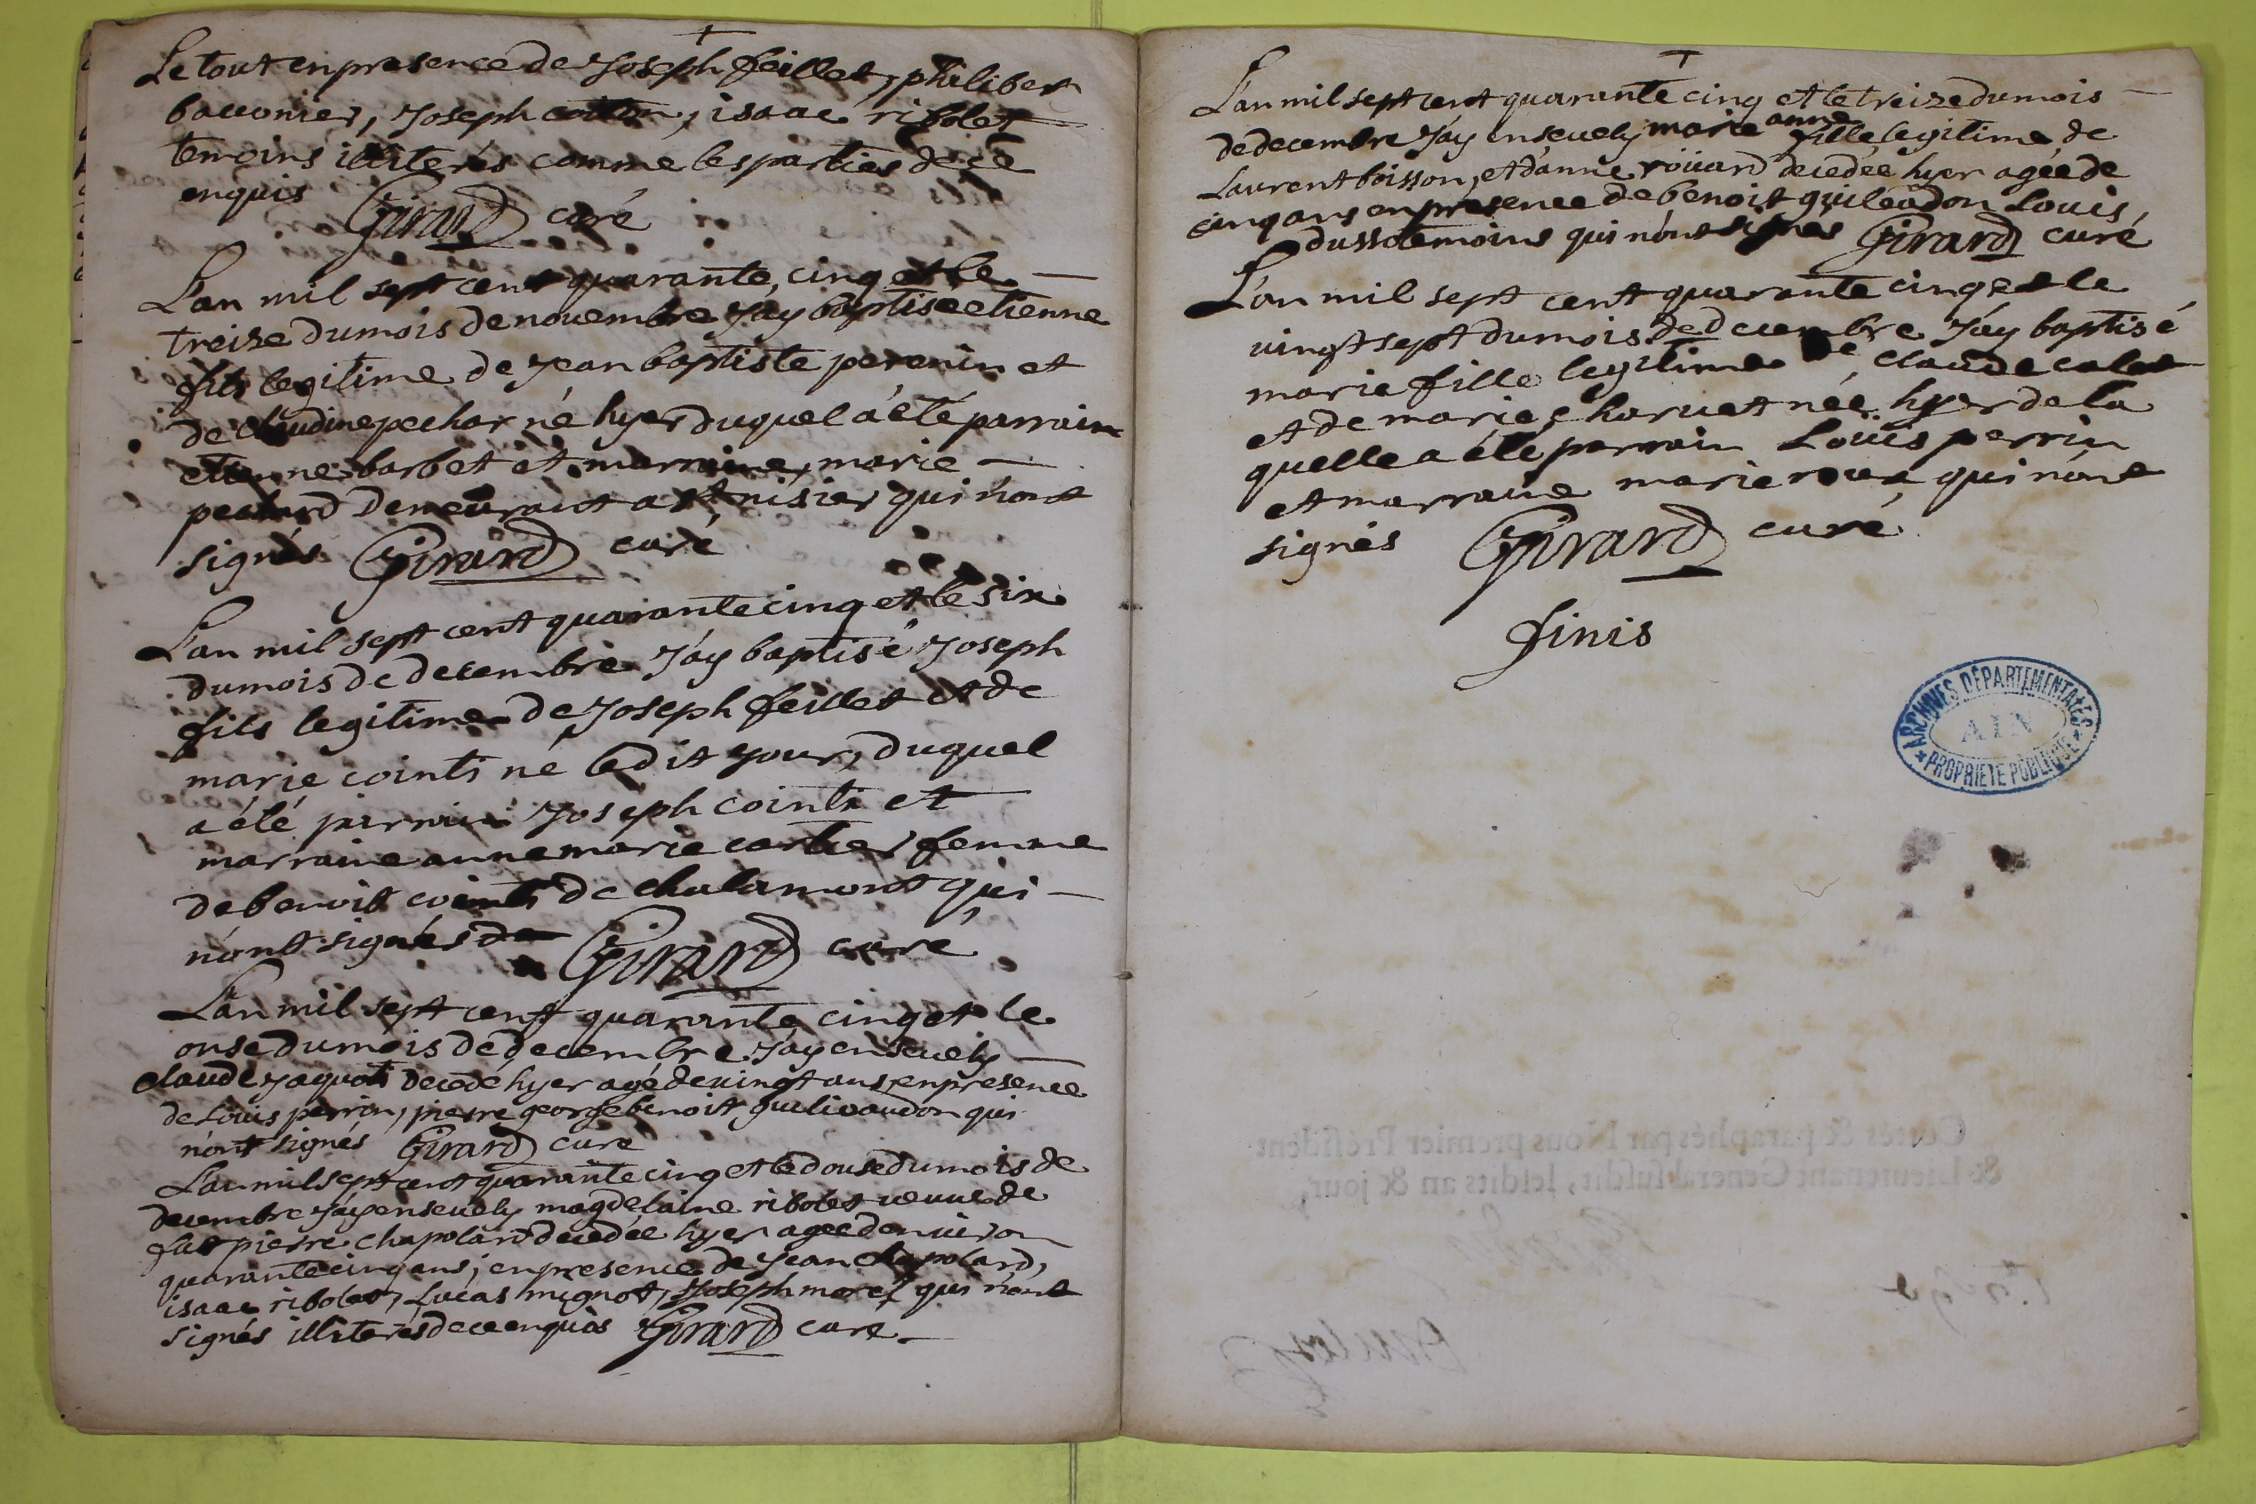 Le tout en presence de Joseph feillet, philibert
bauonier, Joseph cotton, isaac ribolet
temoins illiterés comme les parties de ce
enquis Girard curé
L'an mil sept cent quarante, cinq et le
treize du mois de novembre J'ay baptisé etienne
fils legitime de Jean baptiste perenin et
de claudine pechar né hyer duquel á été parrain
etienne barbet et marraine, marie
pechard demeurant a st nisier qui n'ont
signés Girard curé
L'an mil sept cent quarante cinq et le six
du mois de decembre J'ay baptisé Joseph
fils legitime de Joseph feillet et de
marie cointi né ledit jour, duquel
a été parrain Joseph cointi et
marraine anne marie cartier femme
de benoit cointi de chalamont qui
n'ont signés de Girard curé
L'an mil sept cent quarante cinq et le
onse du mois de decembre J'ay ensevely
claude Jaquot decedé hyer agé de vingt ans, en presence
de Louis perrin, pierre george benoit guilleaudon qui
n'ont signés Girard curé
L'an mil sept cent quarante cinq et le douse du mois de
decembre J'ay ensevely magdelaine ribolet veuve de
fut pierre chapolard decedée hyer agée d'environ
quarante cinq ans; en presence de Jean chapolard,
isaac ribolet, Lucas mignot, Joseph morel qui n'ont
signés illiterés de ce enquis Girard curé
L'an mil sept cent quarante cinq et le treize du mois
de decembre J'ay ensevely marie anne fille legitime de
Laurent boisson, et d'anne roüard decedée hyer agée de
cinq ans en presence de benoit guileaudon Louis
temoins qui n'ont signés Girard curé
L'an mil sept cent quarante cinq et le
vingt sept du mois de decembre J'ay baptisé
marie fille legitime de claude calet
et de marie charvet née hyer de la
quelle a été parrain Loüis perrin
et marraine marie roux qui n'ont
signés Girard curé
finis
ARCHIVES DÉPARTEMENTALES
AIN
PROPRIÉTÉ PUBLIQUE
Cottés & paraphés par Nous premier Président
& Lieutenant General susdit, lesdits an & jour,